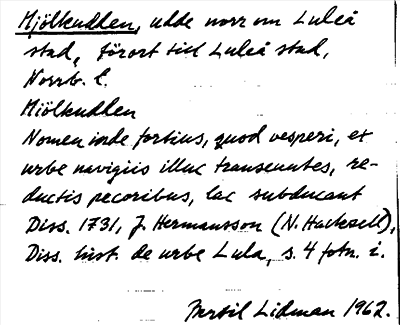 Mjölkudden, udde norr om Luleå
stad, förort till Luleå stad,
Norrb. l.
Miölkudlen
Nomen inde fortius, quod vesperi, et
urbe navigiis illuc transeuntes, re-
ductis pecoribus, lac subducant
Diss. 1731, J. Hermansson (N. Hacksell),
Diss. hist. de urbe Lula, s. 4 fotn. i.
Bertil Lidman 1962.